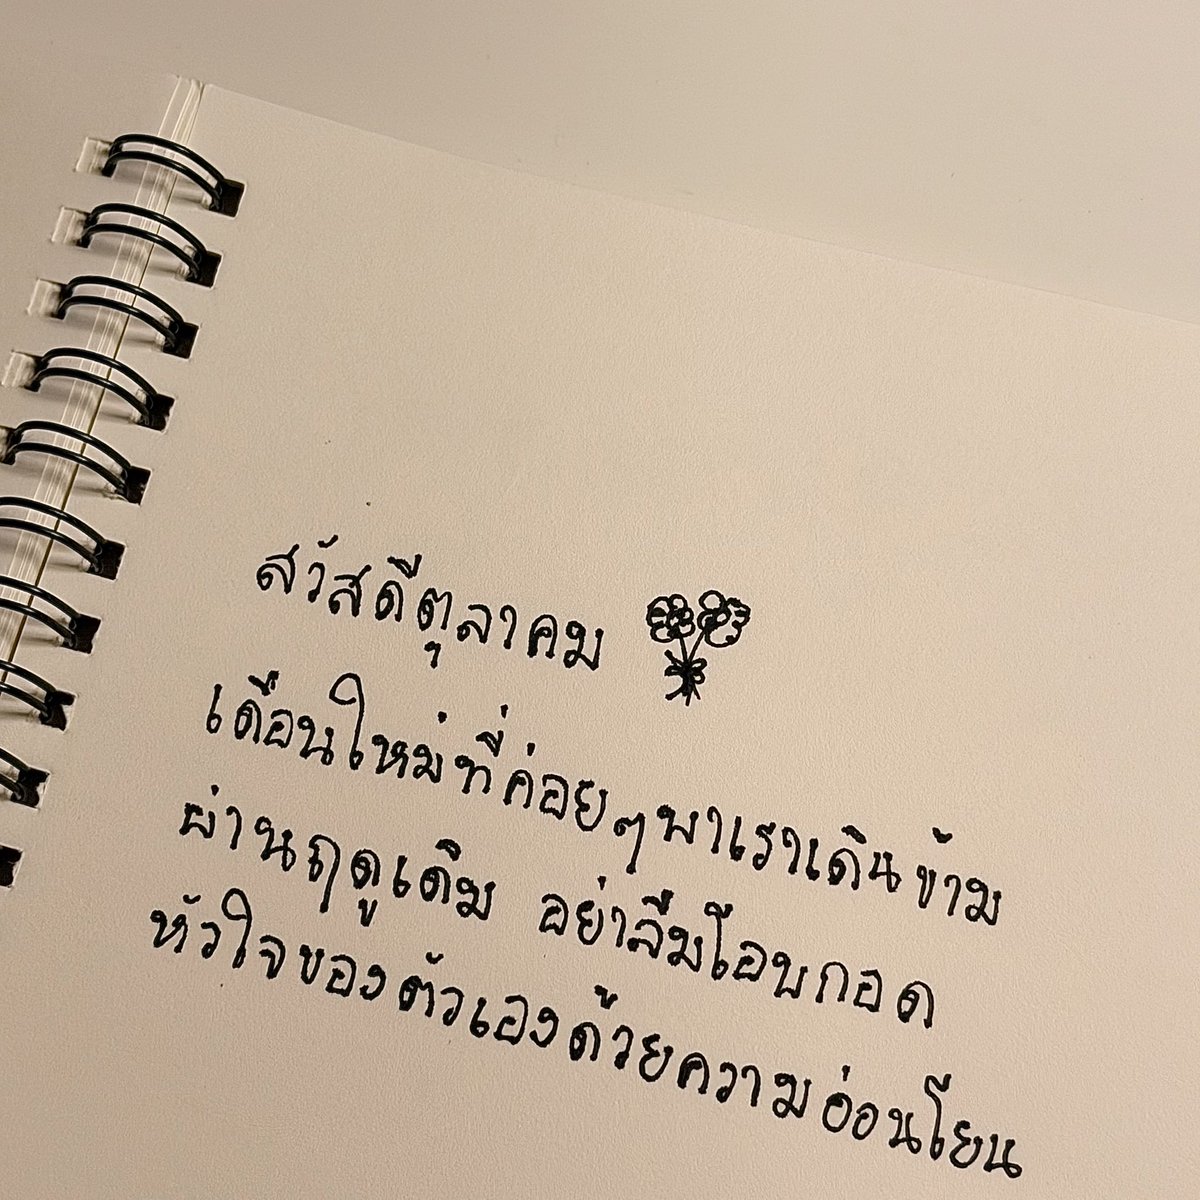 สวัสดีตุลาคม
เดือนใหม่ที่ค่อยๆพาเราเดินข้าม
ผ่านฤดูเดิม อย่าลืมโอบกอด
หัวใจของตัวเองด้วยความอ่อนโยน